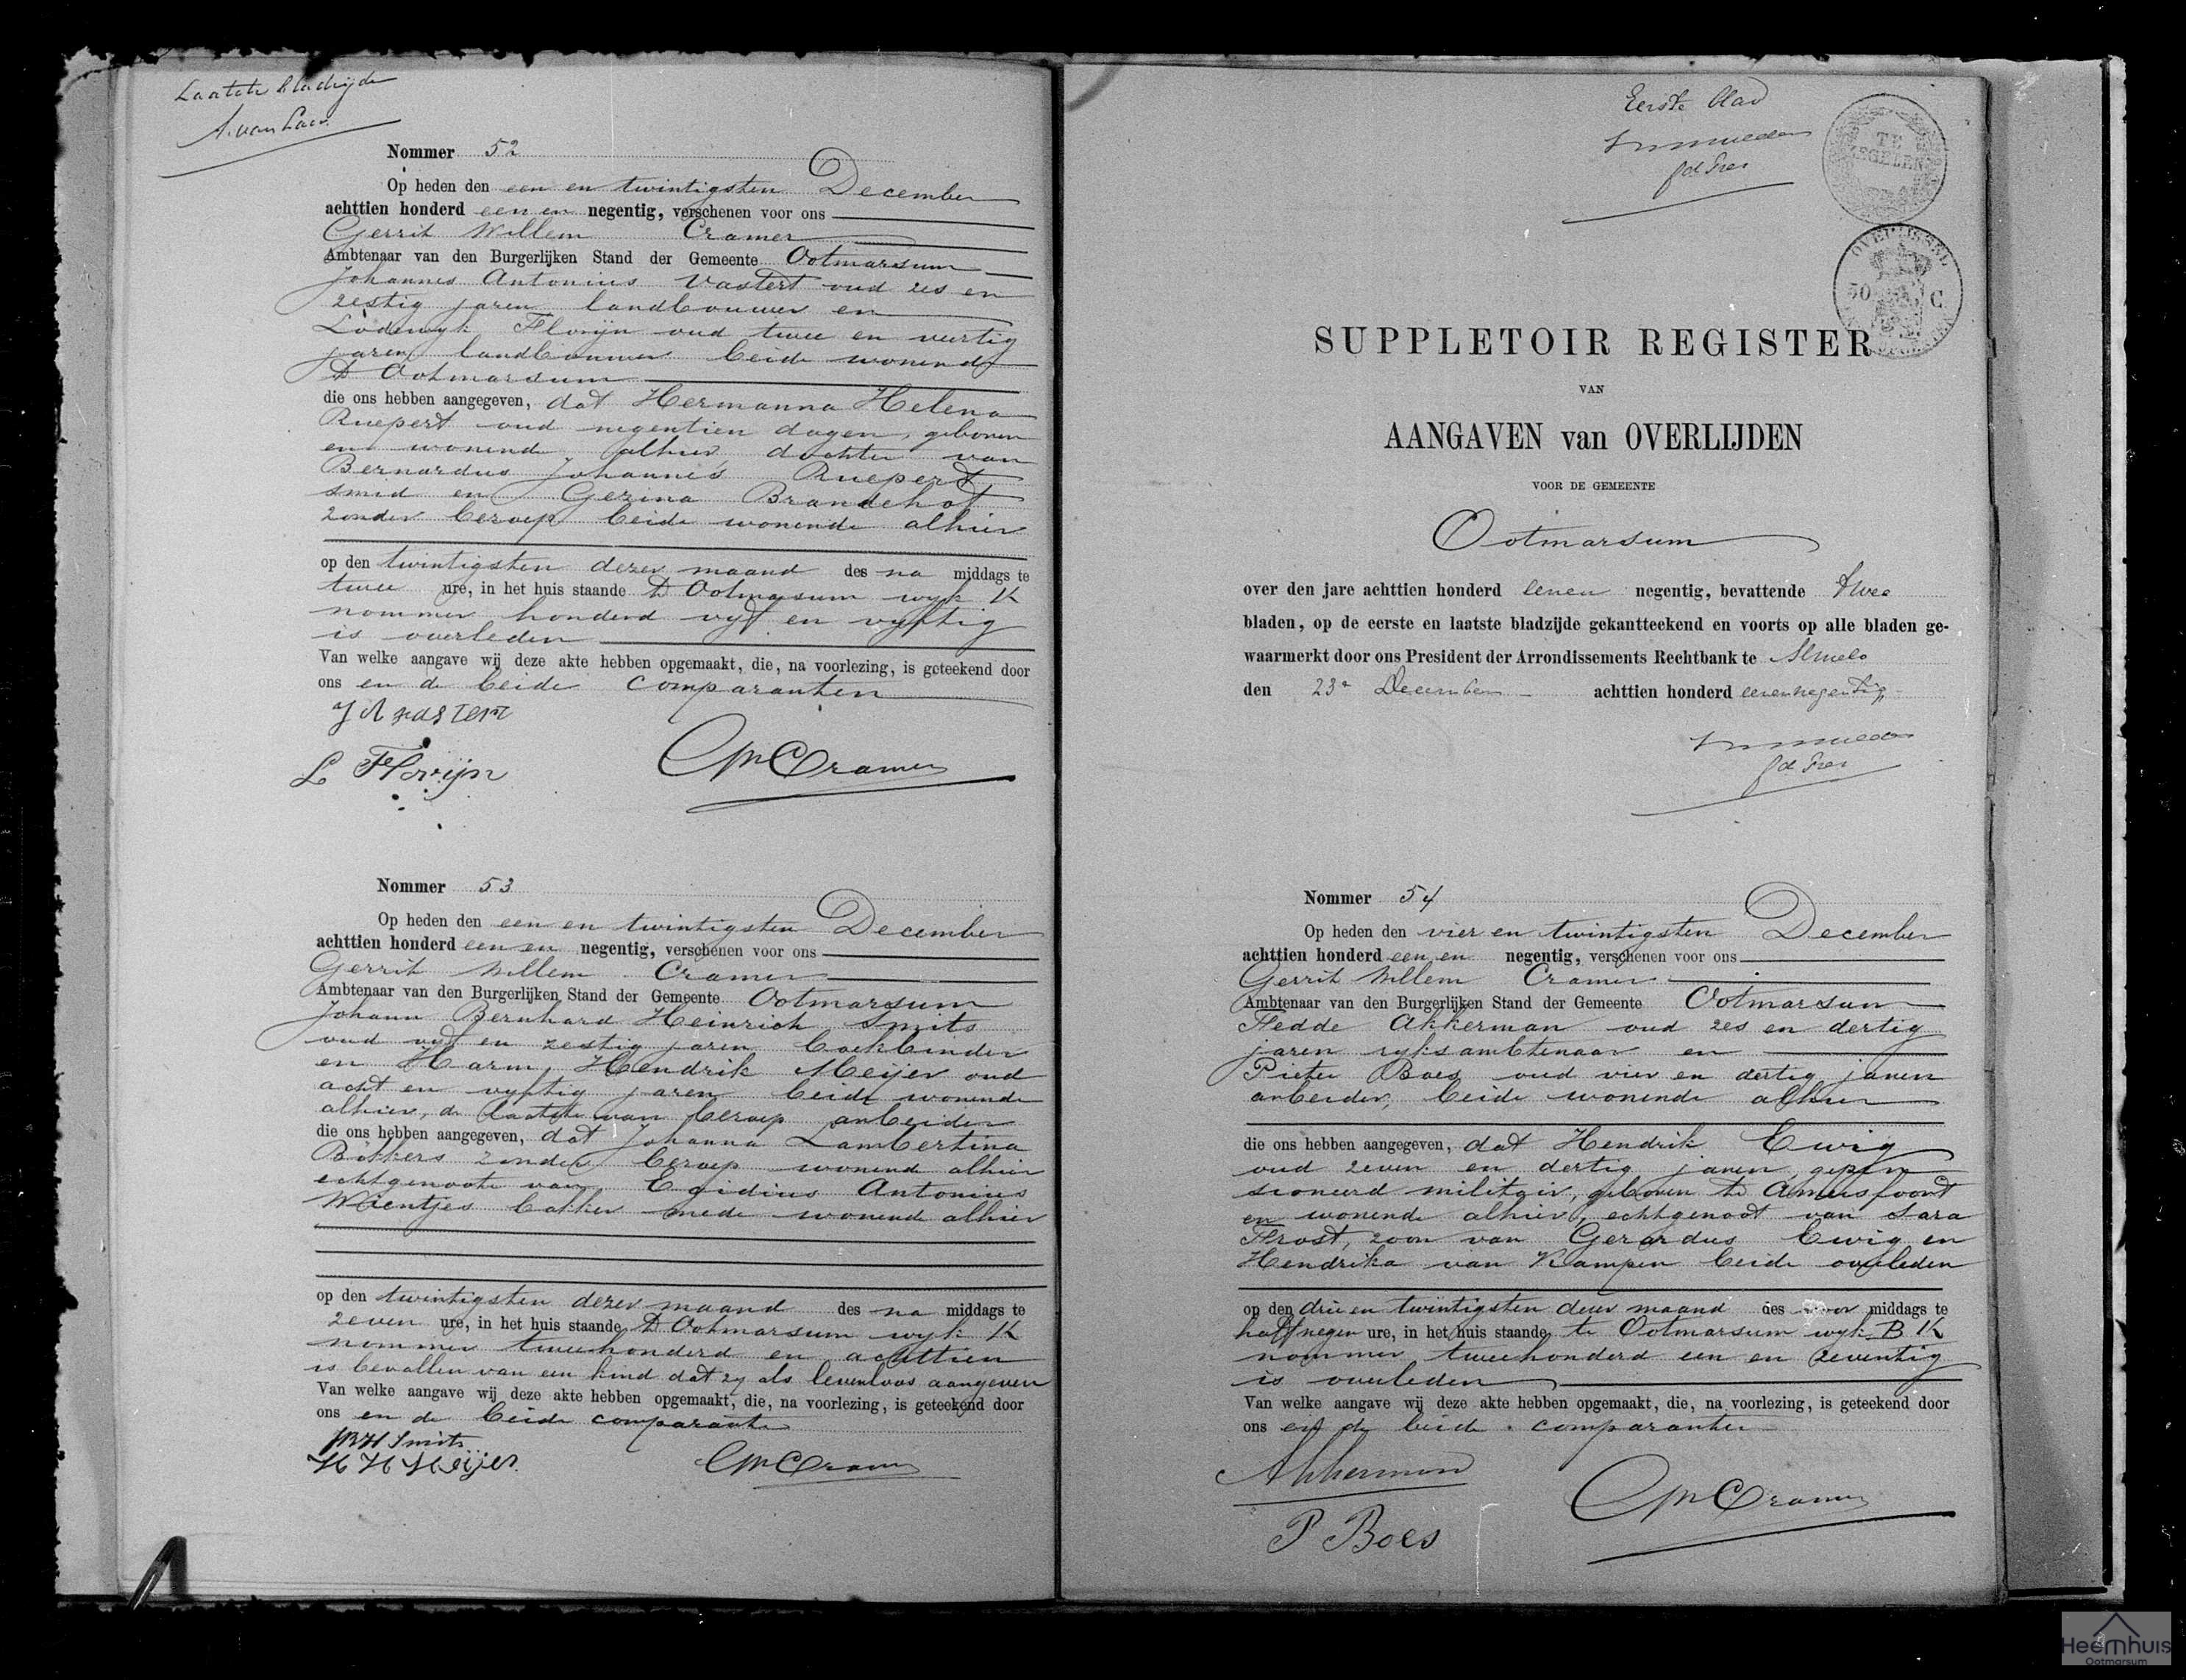 Laatste bladzijde
Nommer 52
Op heden den een en twintigsten December
achttien honderd een en negentig, verschenen voor ons
Gerrit Willem Cramer
Ambtenaar van den Burgerlijken Stand der Gemeente Ootmarsum
Johannes Antonius Vastert oud zes en
zestig jaren landbouwer en
Lodewyk Florijn oud twee en veertig
jaren landbouwer beide wonende
te Ootmarsum
die ons hebben aangegeven, dat Hermanna Helena
Ruepert oud negentien dagen, geboren
en wonende alhier dochter van
Bernardus Johannes Ruepert
smid en Gezina Brandehof
zonder beroep beide wonende alhier
op den twintigsten dezer maand des na middags te
twee ure, in het huis staande te Ootmarsum wyk K
nommer honderd vyf en vyftig
is overleden
Van welke aangave wij deze akte hebben opgemaakt, die, na voorlezing, is geteekend door
ons en de beide comparanten
J A Vastert
L Florijn
GWCramer
Nommer 53
Op heden den een en twintigsten December
achttien honderd een en negentig, verschenen voor ons
Gerrit Willem Cramer
Ambtenaar van den Burgerlijken Stand der Gemeente Ootmarsum
Johann Bernhard Heinrich Smits
oud vyf en zestig jaren boekbinder
en Harm Hendrik Meijer oud
acht en vyftig jaren beide wonende
alhier, de laatste van beroep arbeider
die ons hebben aangegeven, dat Johanna Lambertina
Bökkers zonder beroep wonend alhier
echtgenoote van Egidius Antonius
Wientjes bakker mede wonende alhier
op den twintigsten dezer maand des na middags te
zeven ure, in het huis staande te Ootmarsum wyk K
nommer tweehonderd en achttien
is bevallen van een kind dat zy als levenloos aangeven
Van welke aangave wij deze akte hebben opgemaakt, die, na voorlezing, is geteekend door
ons en de beide comparanten
JBH Smits
H H Meijer
GWCramer
Eerste blad
fd Pres
TE ZEGELEN
OVERIJSSEL
50 C
SUPPLETOIR REGISTER
VAN
AANGAVEN van OVERLIJDEN
VOOR DE GEMEENTE
Ootmarsum
over den jare achttien honderd eenen negentig, bevattende twee
bladen, op de eerste en laatste bladzijde gekantteekend en voorts op alle bladen ge-
waarmerkt door ons President der Arrondissements Rechtbank te Almelo
den 23e December achttien honderd eenennegentig
fd Pres
Nommer 54
Op heden den vier en twintigsten December
achttien honderd een en negentig, verschenen voor ons
Gerrit Willem Cramer
Ambtenaar van den Burgerlijken Stand der Gemeente Ootmarsum
Fedde Akkerman oud zes en dertig
jaren ryksambtenaar en
Pieter Boes oud vier en dertig jaren
arbeider, beide wonende alhier
die ons hebben aangegeven, dat Hendrik Ewig
oud zeven en dertig jaren gepen
sioneerd militair, geboren te Amersfoort
en wonende alhier, echtgenoot van Sara
Frost, zoon van Gerardus Ewig en
Hendrika van Kampen beide overleden
op den drie en twintigsten dezer maand des voor middags te
half negen ure, in het huis staande te Ootmarsum wyk B K
nommer tweehonderd een en zeventig
is overleden
Van welke aangave wij deze akte hebben opgemaakt, die, na voorlezing, is geteekend door
ons en de beide comparanten
Akkerman
P Boes
GWCramer
Heemhuis
Ootmarsum